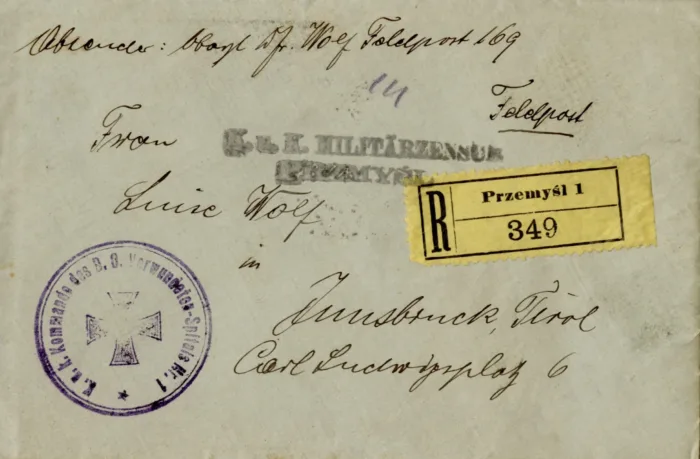 Absender: Obarzt Dr. Wolf Feldpost 169
Feldpost
Frau
K. u. K. MILITÄRZENSUR
PRZEMYŚL
Luise Wolf
R
Przemyśl 1
349
in
Innsbruck, Tirol
Carl Ludwigsplatz 6
K. u. K. Kommando des D. S. Verwundeten-Spitals Nr. 1